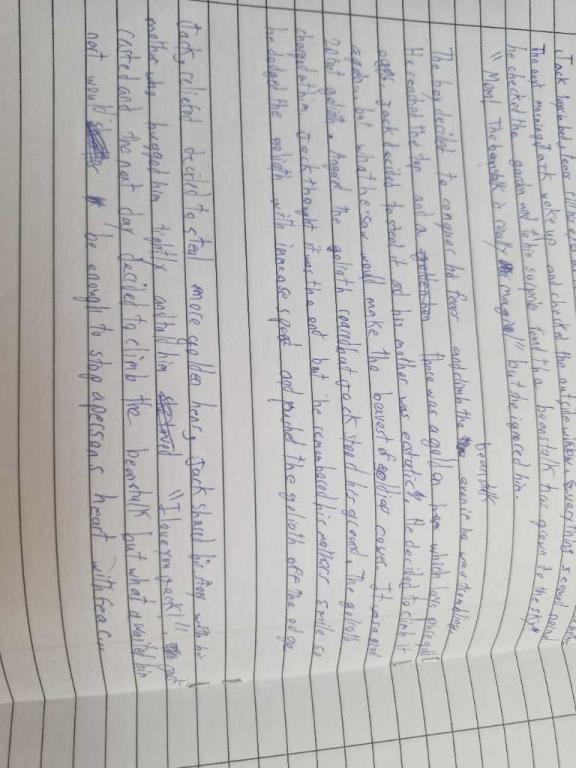 Jack
The next morning Jack woke up and checked the outside window. Everything seemed normal
he checked the garden and to his surprise found the beanstalk has grown to the sky
"Mom! The beanstalk is really magical" but she ignored him.
beanstalk
The boy decided to conquer his fear and climb the even if he was trembling
He reached the top and a there was a golden hen which lays
eggs. Jack decided to steal it and his mother was ecstatic. He decided to climb it
again but what he saw would make the bravest of soldier cower. It was a
goliath. the goliath Jack stood his ground. The goliath
charged at him Jack thought it was the end but he remembered his mothers smile so
he dodged the goliath with immense speed and pushed the goliath off the edge
Jack relieved decided to steal more golden hens, Jack shared his story with his
mother who hugged him tightly and told him "I love you Jack!" The part
and the next day decided to climb the beanstalk but what awaited him
next would be enough to stop a persons heart with fear